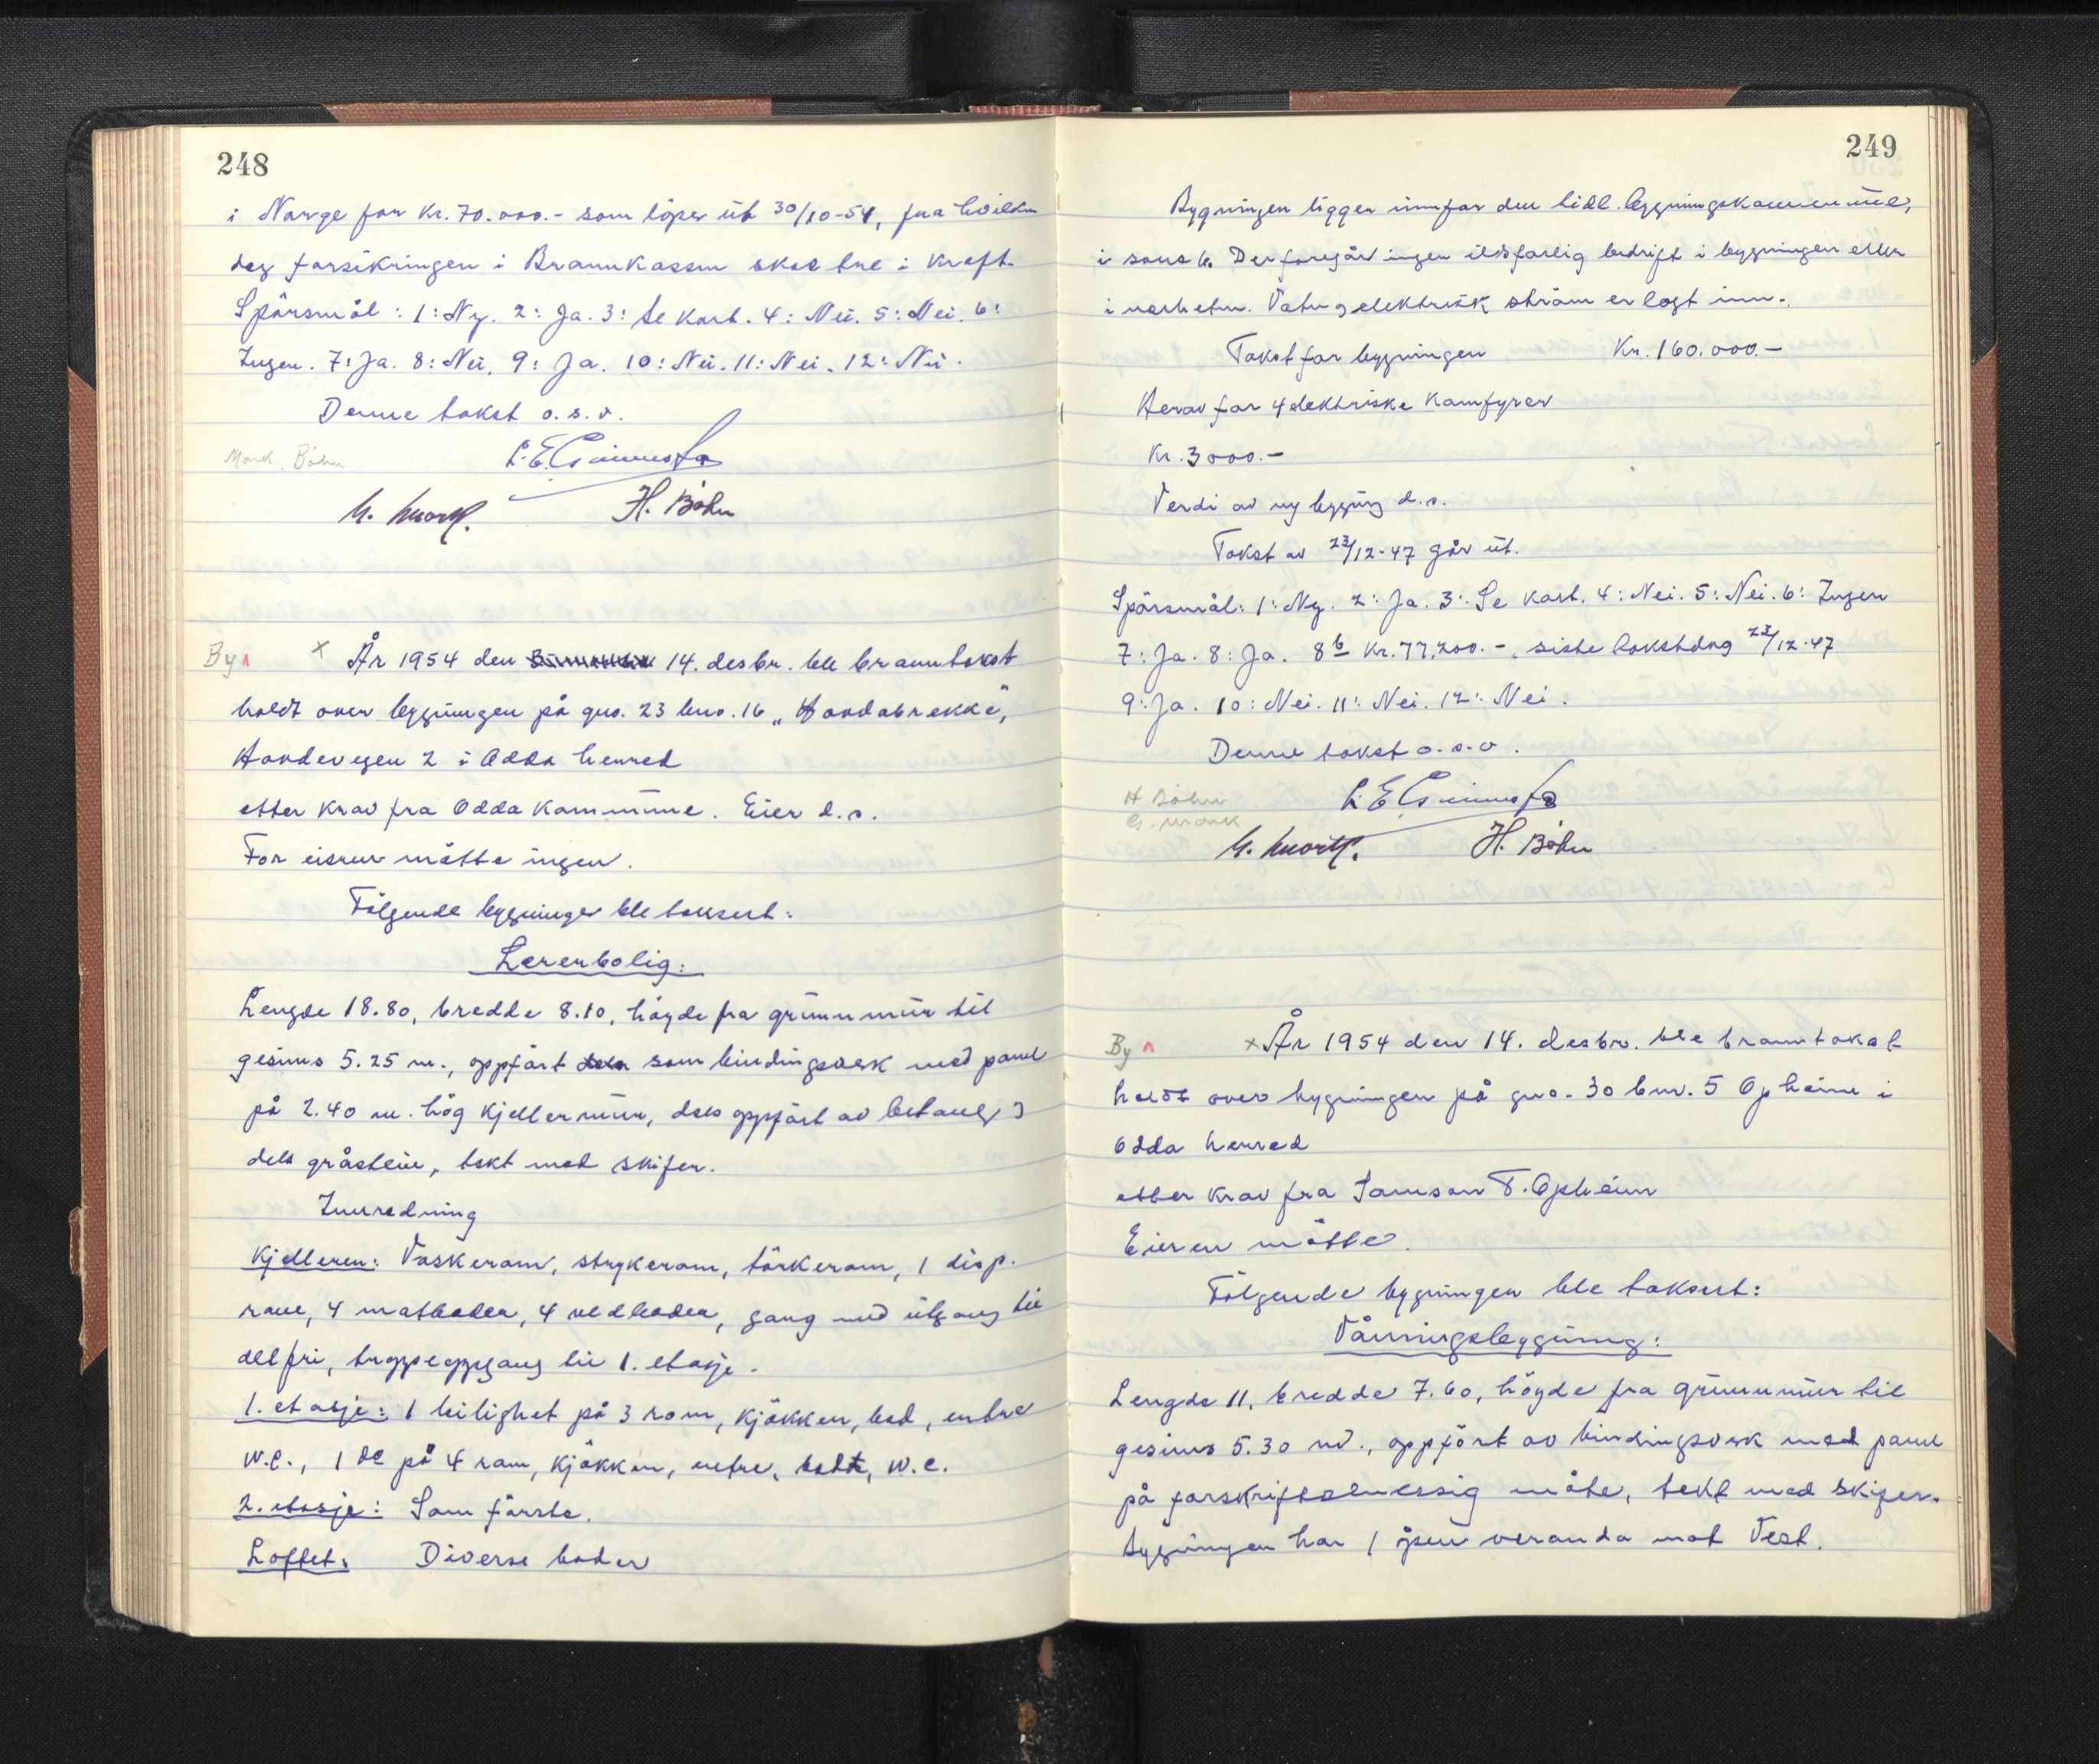 248
i Norge for kr. 70.000.- som löper üt 30/10-54, fra hvilken
dag forsikringen i Brannkassen skal tre i kraft.
Spörsmål: 1: Ny. 2: Ja. 3: Se kart. 4: Nei. 5: Nei. 6:
Ingen. 7: Ja. 8: Nei. 9: Ja. 10: Nei. 11: Nei. 12: Nei.
Denne takst o.s.v.
Mark, Böhn
H. Böhn
By
x År 1954 den 14. desbr. ble branntakst
holdt over bygningen på gno. 23 bno. 16 „Hovdabrekke",
Hovdevegen 2 i Odda herred
etter krav fra Odda kommüne. Eier d.s.
For eieren mötte ingen.
Fölgende bygninger ble taksert:
Lererbolig:
Lengde 18.80, bredde 8.10, höyde fra grünnmür til
gesims 5.25 m., oppfört som bindingsverk med panel
på 2.40 m. hög kjellermür, dels oppfört av betong og
dels gråstein, tekt med skifer.
Innredning
Kjelleren: Vaskerom, strykerom, törkerom, 1 disp.
rom, 4 matboder, 4 vedboder, gang med ütgang til
det fri, trappeoppgang til 1. etasje.
1. etasje: 1 leilighet på 3 rom, kjökken, bad, entre
w.c., 1 do på 4 rom, kjökken, entre, bad, w.c.
2. etasje: Som förste.
Loftet: Diverse boder
249
Bygningen ligger innfor den tidl. bygningskommüne,
i sone 6. Der foregår ingen ildsfarlig bedrift i bygningen eller
i nærheten. Vatn og elektrisk ström er lagt inn.
Takst for bygningen Kr. 160.000.-
Herav for 4 elektriske komfyrer
Kr. 3000.-
Verdi av ny bygging d.s.
Takst av 23/12-47 går üt.
Spörsmål: 1: Ny. 2: Ja. 3: Se kart. 4: Nei. 5: Nei. 6: Ingen
7: Ja. 8: Ja. 8b Kr. 77.200.-, siste takstdag 23/12-47
9: Ja. 10: Nei. 11: Nei. 12: Nei.
Denne takst o.s.v.
H Böhn
G. Mark
H. Böhn
By
x År 1954 den 14. desbr. ble branntakst
holdt over bygningen på gno. 30 bnr. 5 Opheim i
Odda herred
etter krav fra Samson T. Opheim
Eieren mötte.
Fölgende bygningen ble taksert:
Våningsbygning:
Lengde 11, bredde 7.60, höyde fra grünnmür til
gesims 5.30 m., oppfört av bindingsverk med panel
på forskriftsmessig måte, tekt med skifer.
Bygningen har 1 åpen veranda mot Vest.